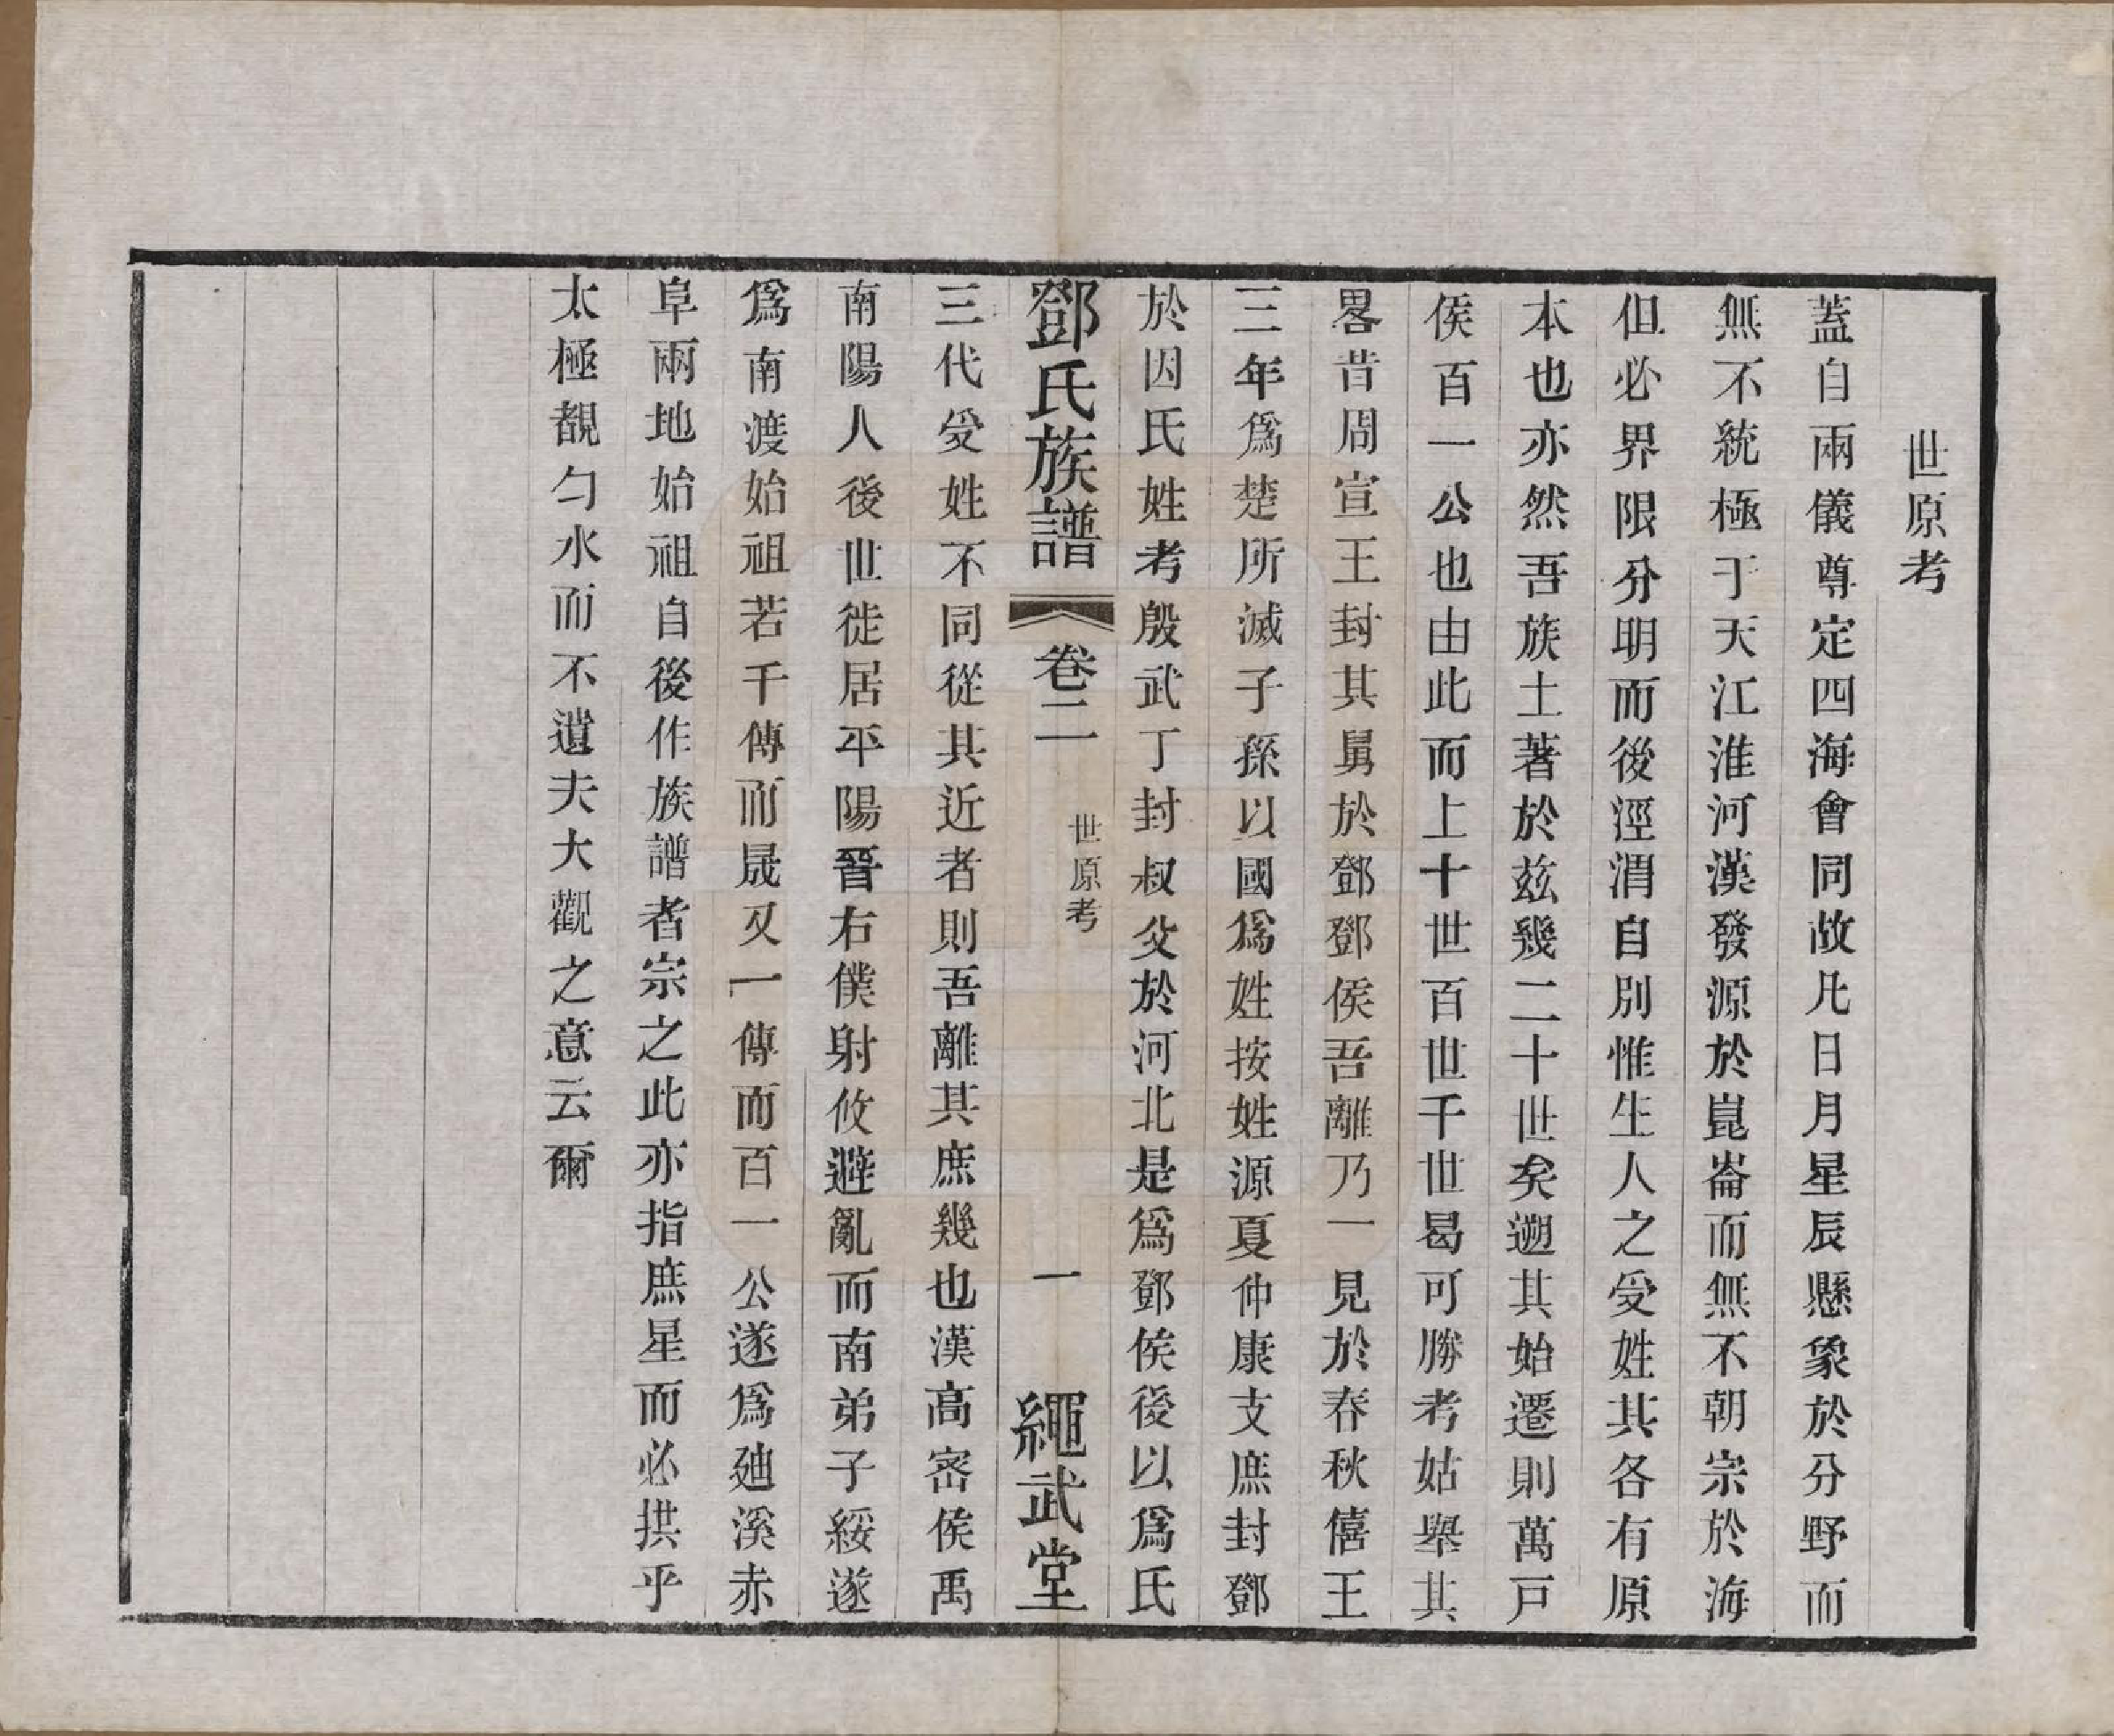 世原考
蓋自兩儀尊定四海會同故凡日月星辰懸象於分野而
無不統極于天江淮河漢發源於崑崙而無不朝宗於海
但必界限分明而後涇渭自別惟生人之受姓其各有原
本也亦然吾族土著於茲幾二十世矣遡其始遷則萬戸
侯百一公也由此而上十世百世千世曷可勝考姑舉其
畧昔周宣王封其舅於鄧鄧侯吾離乃一見於春秋僖王
三年爲楚所滅子孫以國爲姓按姓源夏仲康支庶封鄧
於因氏姓考殷武丁封叔父於河北是爲鄧侯後以爲氏
鄧氏族譜 卷二 世原考 一 繩武堂
三代受姓不同從其近者則吾離其庶幾也漢高密侯禹
南陽人後世徙居平陽晉右僕射攸避亂而南弟子綏遂
爲南渡始祖若干傳而晟又一傳而百一公遂爲廸溪赤
阜兩地始祖自後作族譜者宗之此亦指庶星而必拱乎
太極覩勺水而不遺夫大觀之意云爾